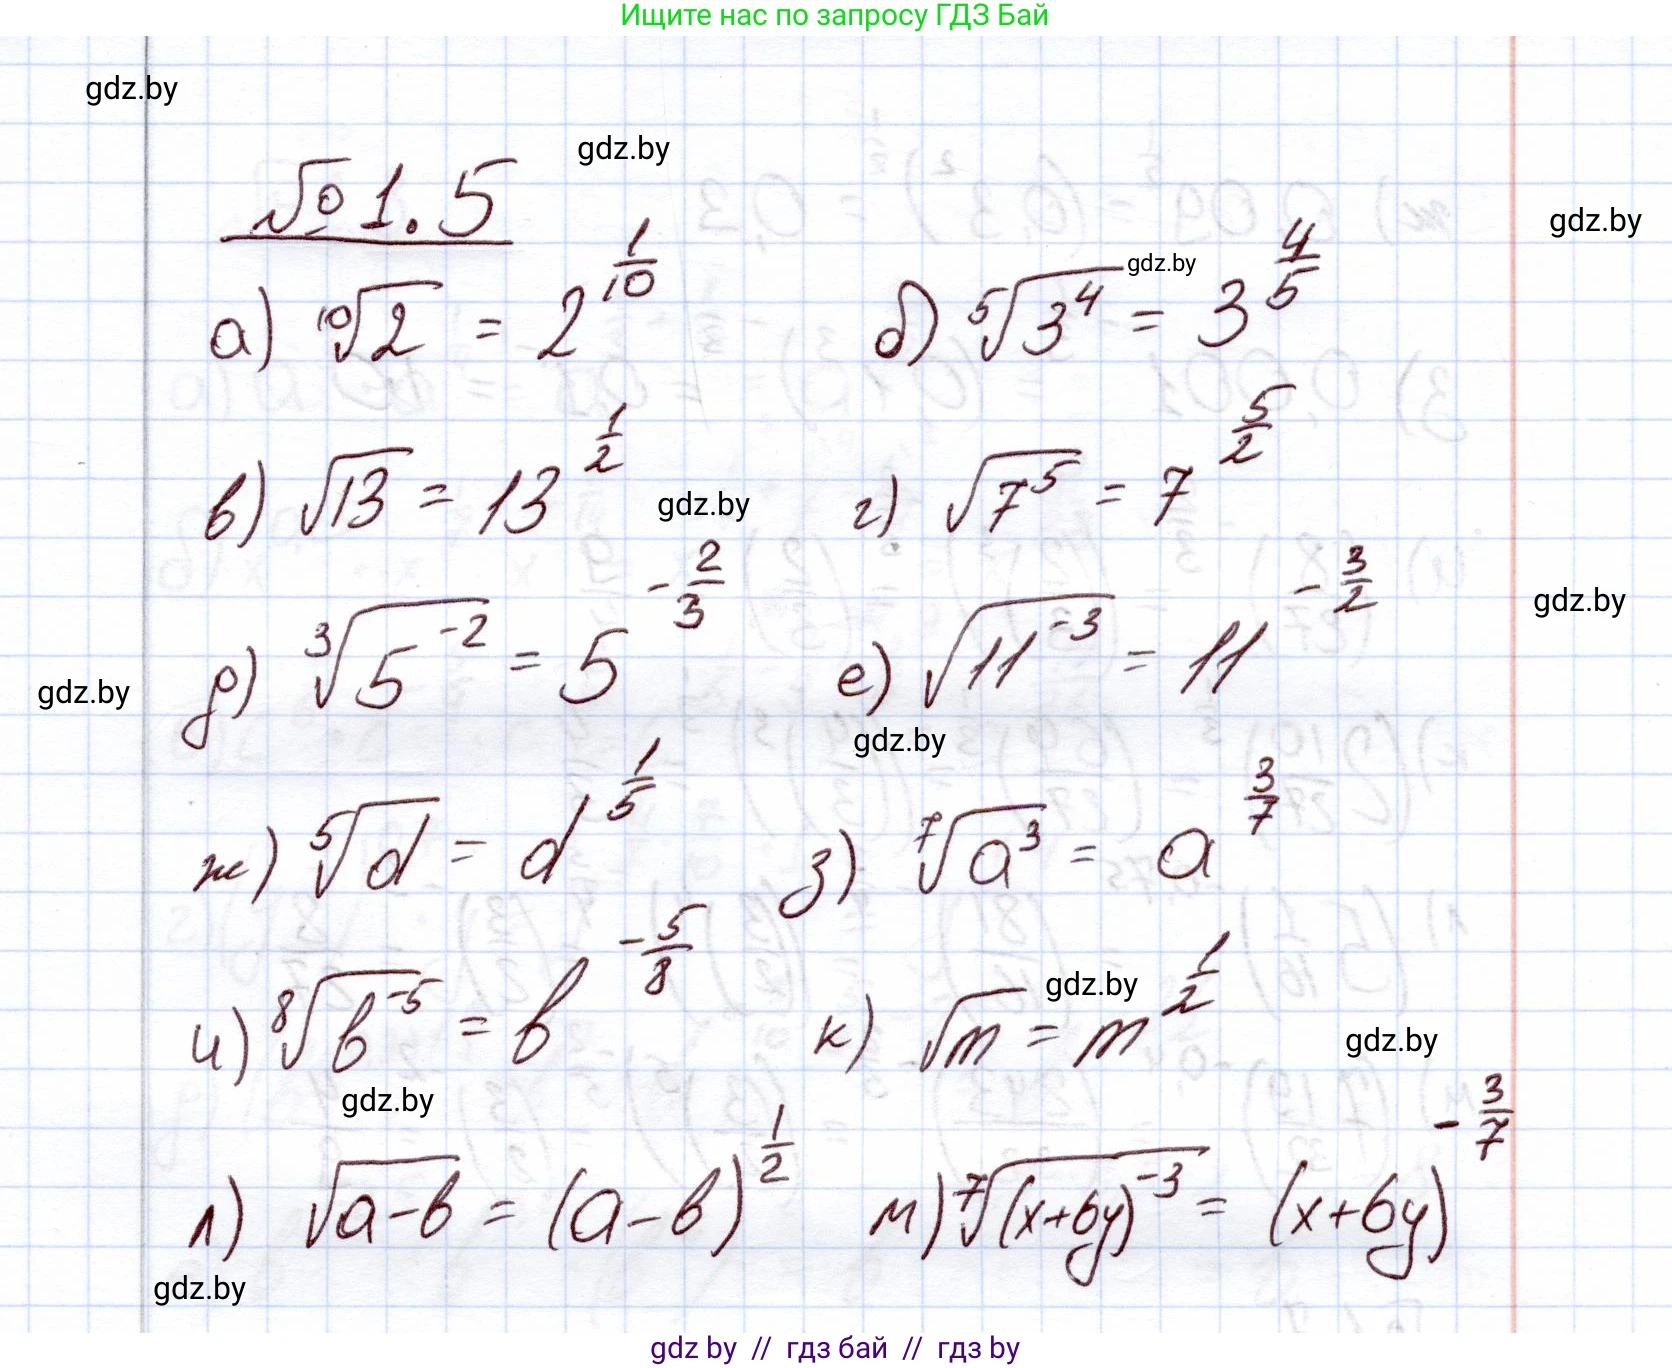 Ищите нас по запросу ГДЗ Бай
gdz.by
gdz.by
№ 1.5
gdz.by
а) ¹⁰√2 = 2^(1/10) б) ⁵√(3⁴) = 3^(4/5)
gdz.by
в) √13 = 13^(1/2) г) √(7⁵) = 7^(5/2)
gdz.by
gdz.by
д) ³√(5⁻²) = 5^(-2/3) е) √(11⁻³) = 11^(-3/2)
gdz.by
gdz.by
ж) ⁵√d = d^(1/5) з) ⁷√(a³) = a^(3/7)
и) ⁸√(b⁻⁵) = b^(-5/8) к) √m = m^(1/2)
gdz.by
gdz.by
gdz.by
л) √(a-b) = (a-b)^(1/2) м) ⁷√((x+6y)⁻³) = (x+6y)^(-3/7)
gdz.by
gdz by // гдз бай // гдз by